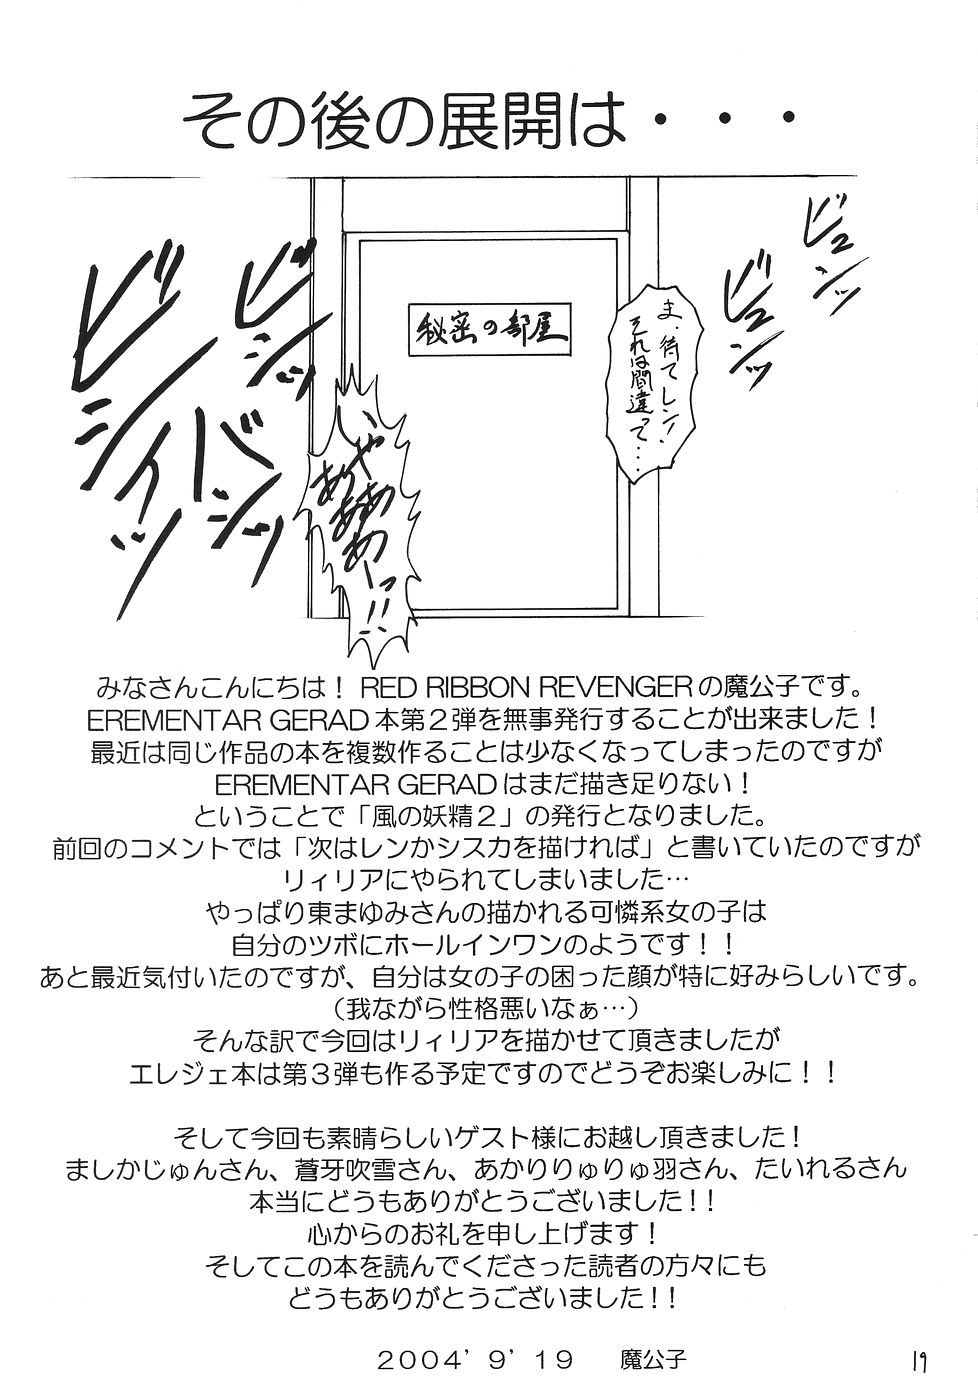 その後の展開は・・・
ビュンッ
ビュンッ
ま、待てレン!
それは間違って・・・・
秘密の部屋
ビシッ
ビシィッ
バシッ
いやあああああーっ!!
みなさんこんにちは! RED RIBBON REVENGERの魔公子です。
EREMENTAR GERAD本第2弾を無事発行することが出来ました!
最近は同じ作品の本を複数作ることは少なくなってしまったのですが
EREMENTAR GERADはまだ描き足りない!
ということで「風の妖精2」の発行となりました。
前回のコメントでは「次はレンかシスカを描ければ」と書いていたのですが
リィリアにやられてしまいました…
やっぱり東まゆみさんの描かれる可憐系女の子は
自分のツボにホールインワンのようです!!
あと最近気付いたのですが、自分は女の子の困った顔が特に好みらしいです。
(我ながら性格悪いなぁ…)
そんな訳で今回はリィリアを描かせて頂きましたが
エレジェ本は第3弾も作る予定ですのでどうぞお楽しみに!!
そして今回も素晴らしいゲスト様にお越し頂きました!
ましかじゅんさん、蒼牙吹雪さん、あかりりゅりゅ羽さん、たいれるさん
本当にどうもありがとうございました!!
心からのお礼を申し上げます!
そしてこの本を読んでくださった読者の方々にも
どうもありがとうございました!!
2004'9'19 魔公子
19